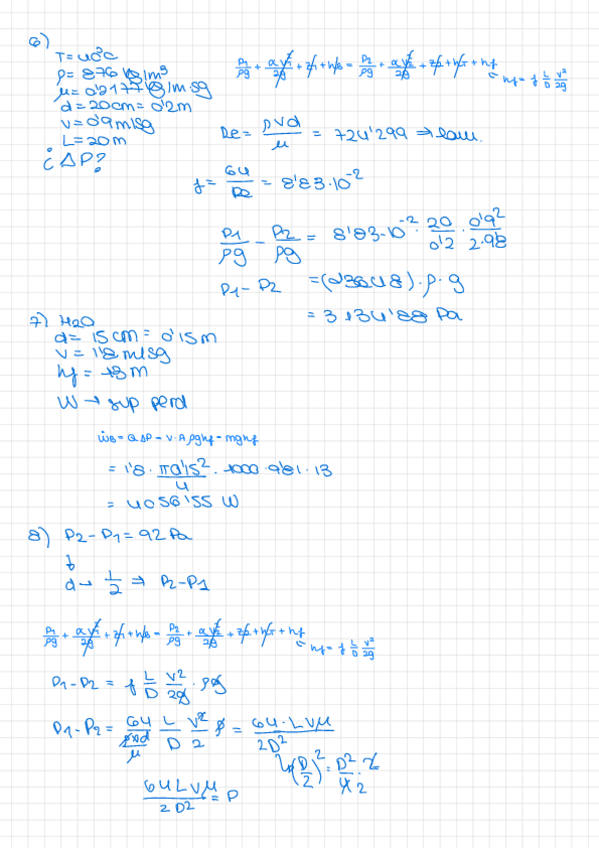 6)
T = 40°C
ρ = 876 kg/m³
μ = 0'2177 kg/m sg
d = 20cm = 0'2m
v = 0'9 m/sg
L = 20m
¿ΔP?
P1/ρg + αv1²/2g + z1 + hB = P2/ρg + αv2²/2g + z2 + hT + hf
hf = f L/D v²/2g
Re = ρvd/μ = 724'299 ⇒ lam.
f = 64/Re = 8'83·10⁻²
P1/ρg − P2/ρg = 8'83·10⁻² · 20/0'2 · 0'9²/2·98
P1 − P2 = (0'3648)·ρ·g
= 3134'88 Pa
7) H2O
d = 15 cm = 0'15m
v = 1'8 m/sg
hf = 13 m
W → sup perd
ẆB = Q ΔP = v·A ρghf = mghf
= 1'8 · π0'15²/4 · 1000 · 9'81 · 13
= 4056'55 W
8) P2 − P1 = 92 Pa
d → L/2 ⇒ P2 − P1
P1/ρg + αv1²/2g + z1 + hB = P2/ρg + αv2²/2g + z2 + hT + hf
hf = f L/D v²/2g
P1 − P2 = f L/D v²/2g · ρg
P1 − P2 = 64/ρvd/μ L/D v²/2 ρ = 64·L vμ/2D²
(D/2)² = D²/4 · 2
2
64Lvμ/2D² = P